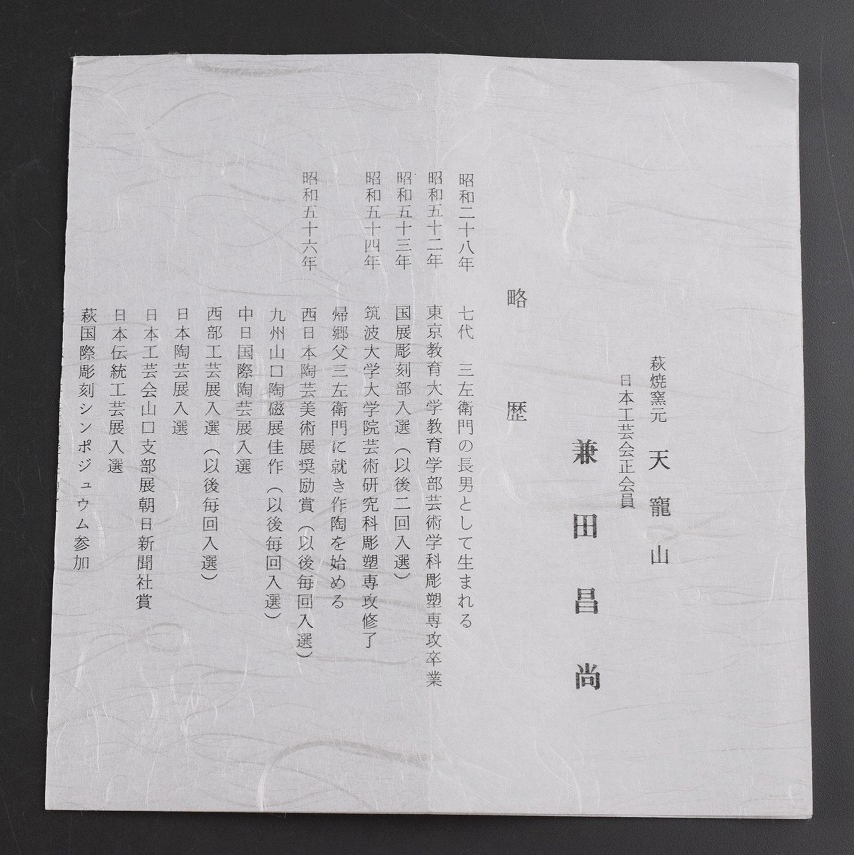 萩焼窯元 天寵山
日本工芸会正会員
兼田昌尚
略歴
昭和二十八年 七代 三左衛門の長男として生まれる
昭和五十二年 東京教育大学教育学部芸術学科彫塑専攻卒業
昭和五十三年 国展彫刻部入選(以後二回入選)
昭和五十四年 筑波大学大学院芸術研究科彫塑専攻修了
帰郷父三左衛門に就き作陶を始める
昭和五十六年 西日本陶芸美術展奨励賞(以後毎回入選)
九州山口陶磁展佳作(以後毎回入選)
中日国際陶芸展入選
西部工芸展入選(以後毎回入選)
日本陶芸展入選
日本工芸会山口支部展朝日新聞社賞
日本伝統工芸展入選
萩国際彫刻シンポジュウム参加